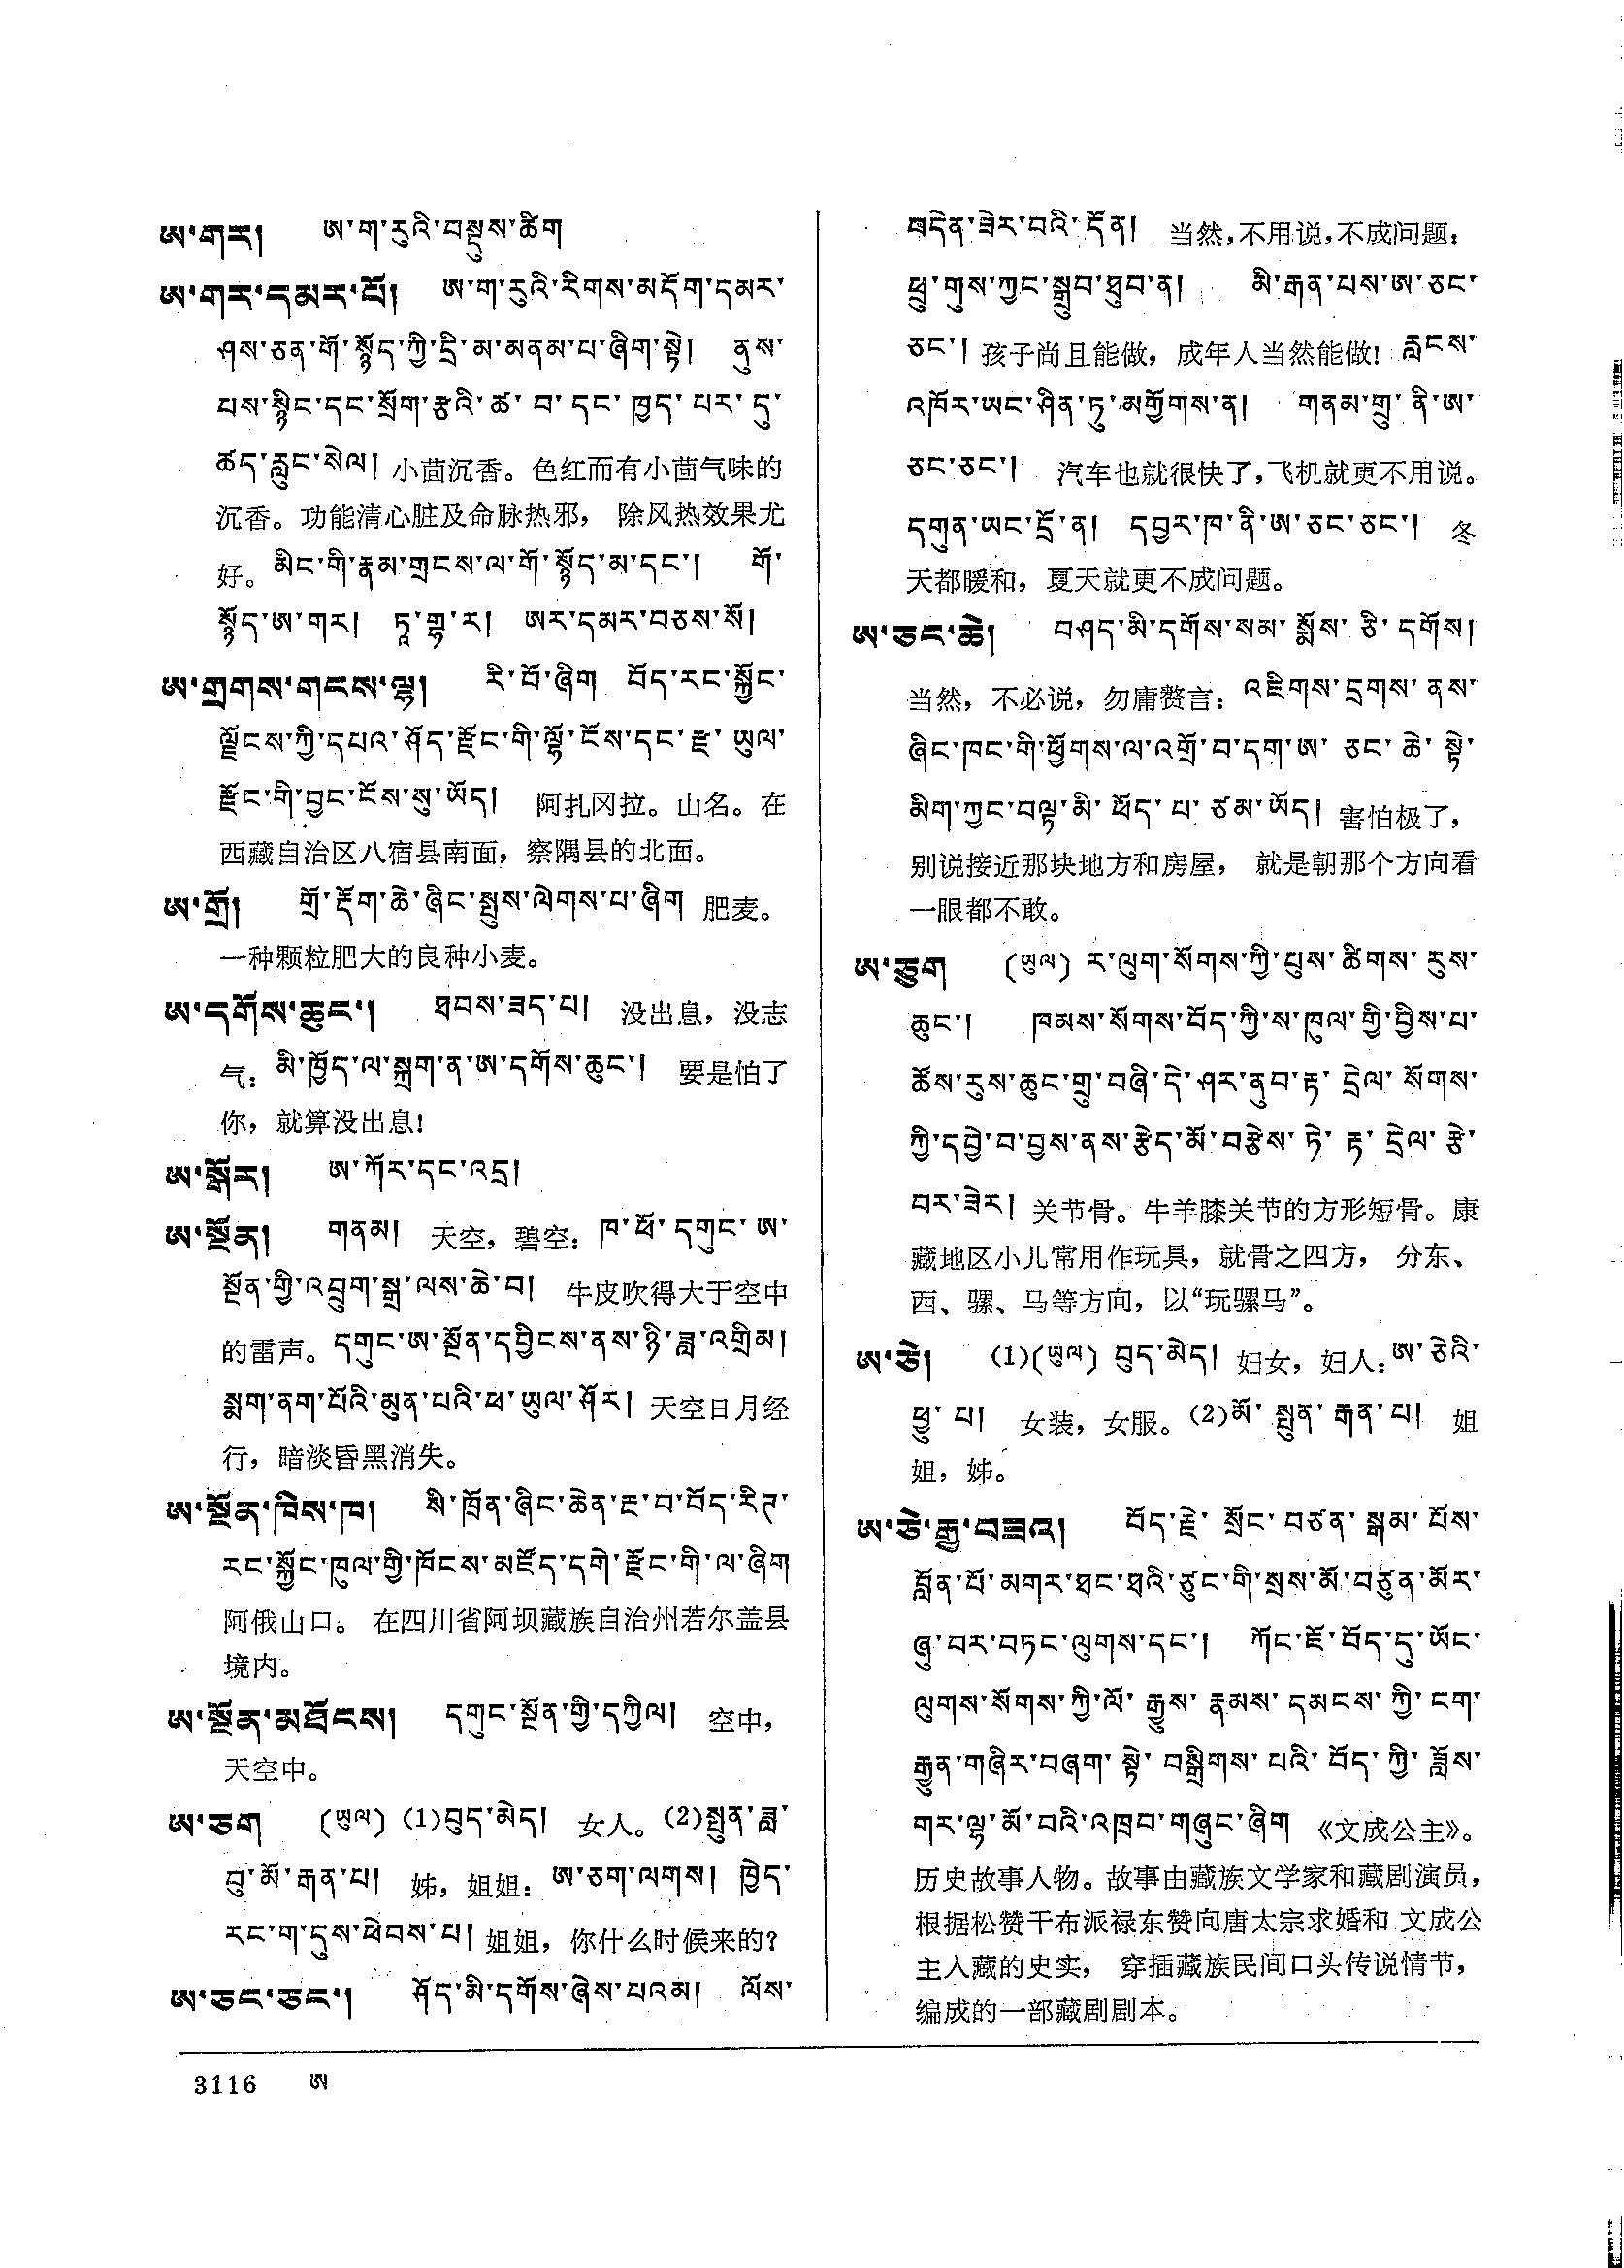 ཨ་གར། ཨ་ག་རུའི་བསྡུས་ཚིག
ཨ་གར་དམར་པོ། ཨ་ག་རུའི་རིགས་མདོག་དམར་
ཤས་ཅན་གོ་སྙོད་ཀྱི་དྲི་མ་མནམ་པ་ཞིག་སྟེ། ནུས་
པས་སྙིང་དང་སྲོག་རྩའི་ཚ་བ་དང་ཁྱད་པར་དུ་
ཚད་རླུང་སེལ། 小茴沉香。色红而有小茴气味的
沉香。功能清心脏及命脉热邪，除风热效果尤
好。མིང་གི་རྣམ་གྲངས་ལ་གོ་སྙོད་མ་དང་། གོ་
སྙོད་ཨ་གར། ཏཱ་གྷ་ར། ཨར་དམར་བཅས་སོ།
ཨ་གྲགས་གངས་ལྷ། རི་བོ་ཞིག བོད་རང་སྐྱོང་
ལྗོངས་ཀྱི་དཔའ་ཤོད་རྫོང་གི་ལྷོ་ངོས་དང་རྫ་ཡུལ་
རྫོང་གི་བྱང་ངོས་སུ་ཡོད། 阿扎冈拉。山名。在
西藏自治区八宿县南面，察隅县的北面。
ཨ་གྲོ། གྲོ་རྡོག་ཆེ་ཞིང་སྤུས་ལེགས་པ་ཞིག 肥麦。
一种颗粒肥大的良种小麦。
ཨ་དགོས་ཆུང་། ཐབས་ཟད་པ། 没出息，没志
气：མི་ཁྱོད་ལ་སྐྲག་ན་ཨ་དགོས་ཆུང་། 要是怕了
你，就算没出息!
ཨ་སྒོར། ཨ་ཀོར་དང་འདྲ།
ཨ་སྔོན། གནམ། 天空，碧空：ཁ་ཕོ་དགུང་ཨ་
སྔོན་གྱི་འབྲུག་སྒྲ་ལས་ཆེ་བ། 牛皮吹得大于空中
的雷声。དགུང་ཨ་སྔོན་དབྱིངས་ནས་ཉི་ཟླ་འགྲིམ།
སྨག་ནག་པོའི་མུན་པའི་ཕ་ཡུལ་ཤོར། 天空日月经
行，暗淡昏黑消失。
ཨ་སྔོན་ཁེས་ཁ། སི་ཁྲོན་ཞིང་ཆེན་རྔ་བ་བོད་རིཊ་
རང་སྐྱོང་ཁུལ་གྱི་ཁོངས་མཛོད་དགེ་རྫོང་གི་ལ་ཞིག
阿俄山口。在四川省阿坝藏族自治州若尔盖县
境内。
ཨ་སྔོན་མཐོངས། དགུང་སྔོན་གྱི་དཀྱིལ། 空中，
天空中。
ཨ་ཅག (ཡུལ) (1)བུད་མེད། 女人。(2)སྤུན་ཟླ་
བུ་མོ་རྒན་པ། 姊，姐姐：ཨ་ཅག་ལགས། ཁྱེད་
རང་ག་དུས་ཕེབས་པ། 姐姐，你什么时候来的?
ཨ་ཅང་ཅང་། ཤོད་མི་དགོས་ཞེས་པའམ། ལོས་
བདེན་ཟེར་བའི་དོན། 当然，不用说，不成问题：
ཕྲུ་གུས་ཀྱང་སྒྲུབ་ཐུབ་ན། མི་རྒན་པས་ཨ་ཅང་
ཅང་། 孩子尚且能做，成年人当然能做! རླངས་
འཁོར་ཡང་ཤིན་ཏུ་མགྱོགས་ན། གནམ་གྲུ་ནི་ཨ་
ཅང་ཅང་། 汽车也就很快了，飞机就更不用说。
དགུན་ཡང་དྲོ་ན། དབྱར་ཁ་ནི་ཨ་ཅང་ཅང་། 冬
天都暖和，夏天就更不成问题。
ཨ་ཅང་ཆེ། བཤད་མི་དགོས་སམ་སྨོས་ཅི་དགོས།
当然，不必说，勿庸赘言：འཇིགས་དྲགས་ནས་
ཞིང་ཁང་གི་ཕྱོགས་ལ་འགྲོ་བ་དག་ཨ་ཅང་ཆེ་སྟེ་
མིག་ཀྱང་བལྟ་མི་ཕོད་པ་ཙམ་ཡོད། 害怕极了，
别说接近那块地方和房屋，就是朝那个方向看
一眼都不敢。
ཨ་ཅུག (ཡུལ) ར་ལུག་སོགས་ཀྱི་པུས་ཚིགས་རུས་
ཆུང་། ཁམས་སོགས་བོད་ཀྱི་ས་ཁུལ་གྱི་བྱིས་པ་
ཚོས་རུས་ཆུང་གྲུ་བཞི་དེ་ཤར་ནུབ་རྟ་དྲེལ་སོགས་
ཀྱི་དབྱེ་བ་བྱས་ནས་རྩེད་མོ་བརྩེས་ཏེ་རྟ་དྲེལ་རྩེ་
བར་ཟེར། 关节骨。牛羊膝关节的方形短骨。康
藏地区小儿常用作玩具，就骨之四方，分东、
西、骡、马等方向，以“玩骡马”。
ཨ་ཅེ། (1)(ཡུལ) བུད་མེད། 妇女，妇人：ཨ་ཅེའི་
ཕྱུ་པ། 女装，女服。(2)མོ་སྤུན་རྒན་པ། 姐
姐，姊。
ཨ་ཅེ་རྒྱ་བཟའ། བོད་རྗེ་སྲོང་བཙན་སྒམ་པོས་
བློན་པོ་མགར་ཐང་ཐའི་ཙུང་གི་སྲས་མོ་བཙུན་མོར་
ཞུ་བར་བཏང་ལུགས་དང་། ཀོང་ཇོ་བོད་དུ་ཡོང་
ལུགས་སོགས་ཀྱི་ལོ་རྒྱུས་རྣམས་དམངས་ཀྱི་ངག་
རྒྱུན་གཞིར་བཞག་སྟེ་བསྒྲིགས་པའི་བོད་ཀྱི་ཟློས་
གར་ལྷ་མོ་བའི་འཁྲབ་གཞུང་ཞིག 《文成公主》。
历史故事人物。故事由藏族文学家和藏剧演员，
根据松赞干布派禄东赞向唐太宗求婚和文成公
主入藏的史实，穿插藏族民间口头传说情节，
编成的一部藏剧剧本。
3116 ཨ